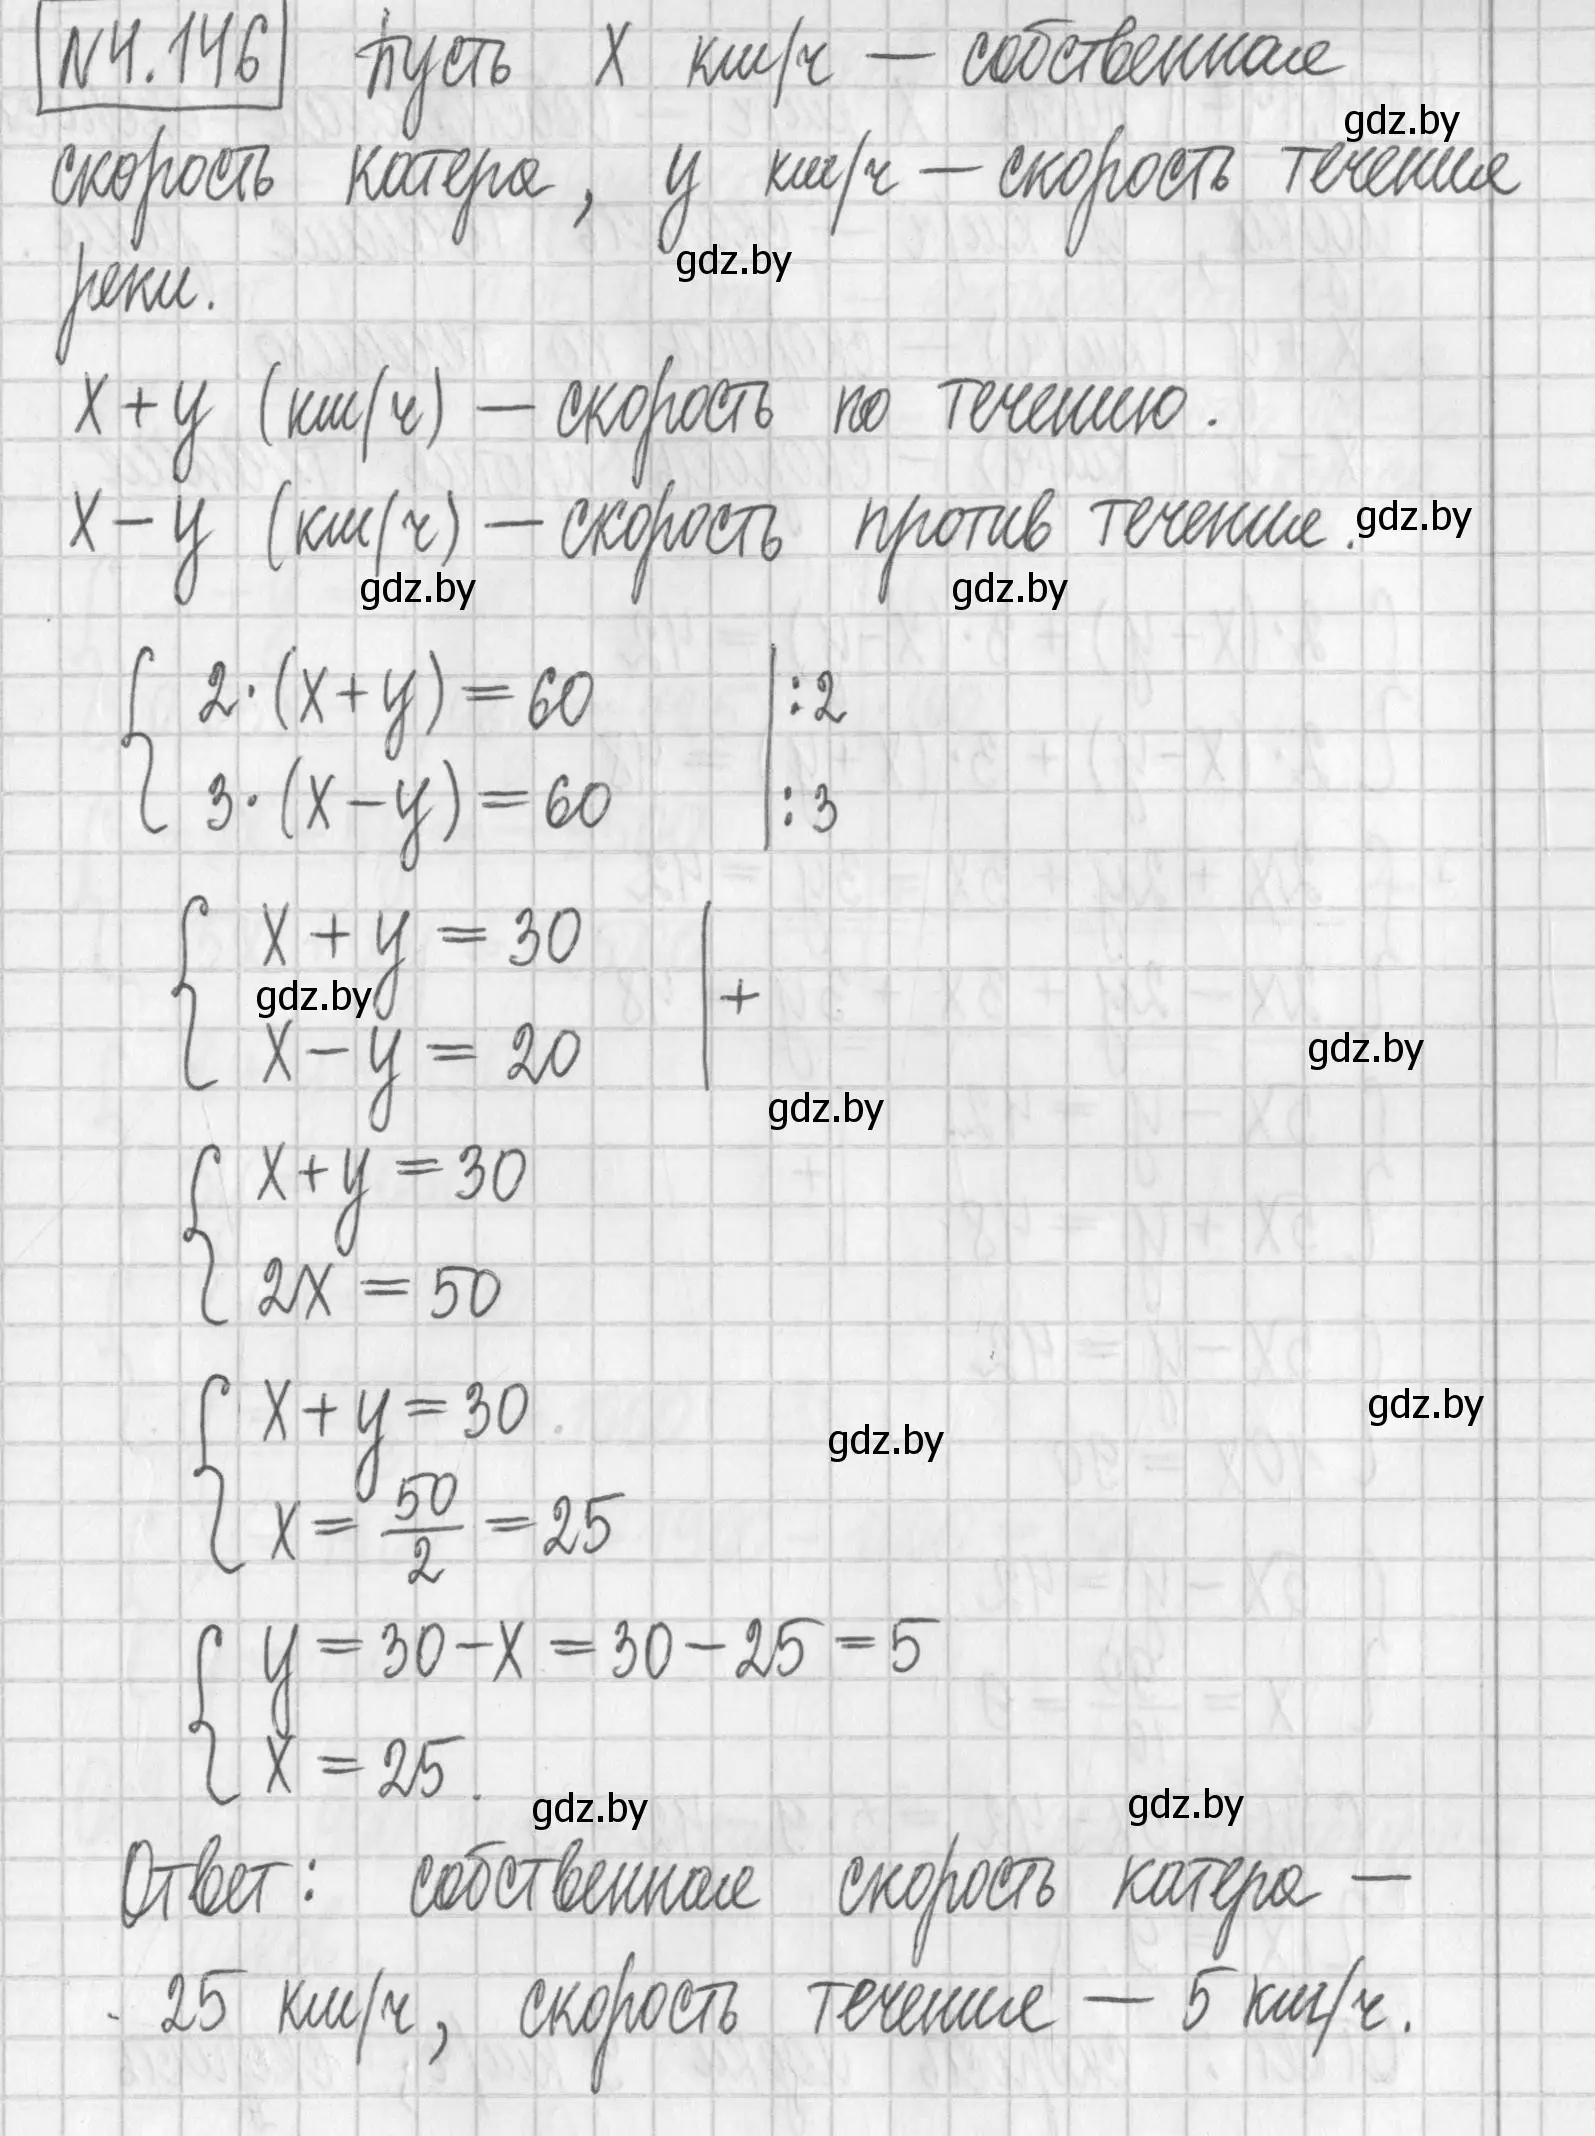 №4.146 Пусть x км/ч — собственная
gdz.by
скорость катера, y км/ч — скорость течения
gdz.by
реки.
x + y (км/ч) — скорость по течению.
x – y (км/ч) — скорость против течения.
gdz.by
gdz.by gdz.by
{ 2·(x+y) = 60 | :2
3·(x–y) = 60 | :3
{ x + y = 30 | +
gdz.by
x – y = 20
gdz.by
gdz.by
{ x+y = 30
2x = 50
{ x+y = 30
gdz.by
gdz.by
x = 50/2 = 25
{ y = 30 – x = 30 – 25 = 5
x = 25.
gdz.by gdz.by
Ответ: собственная скорость катера —
25 км/ч, скорость течения — 5 км/ч.